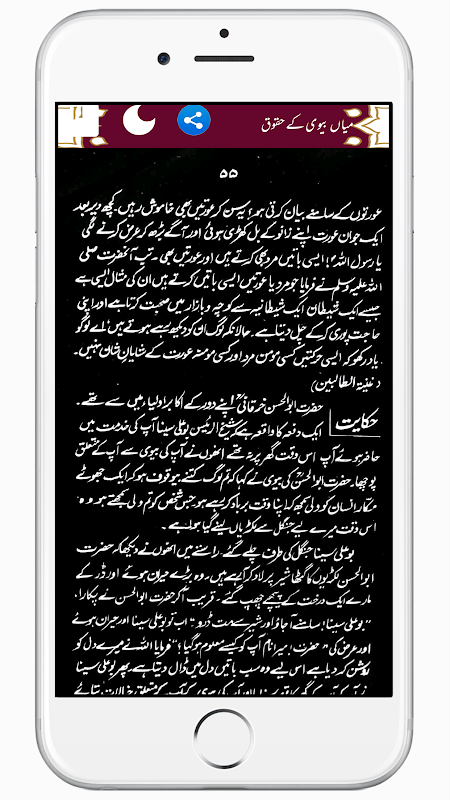 میاں بیوی کے حقوق
۵۵
عورتوں کے سامنے بیان کرتی ہو؟ یہ سن کر عورتیں بھی خاموش رہیں۔ کچھ دیر بعد
ایک جوان عورت اپنے زانو کے بل کھڑی ہوئی اور آگے بڑھ کر عرض کرنے لگی
یا رسول اللہؐ! ایسی باتیں مرد بھی کرتے ہیں اور عورتیں بھی۔ تب آنحضرت صلی
اللہ علیہ وسلم نے فرمایا جو مرد یا عورتیں ایسی باتیں کرتے ہیں ان کی مثال ایسی ہے
جیسے ایک شیطان ایک شیطانیہ سے کوچہ و بازار میں صحبت کرتا ہے اور اپنی
حاجت پوری کر کے چل دیتا ہے۔ حالانکہ لوگ ان کو دیکھ رہے ہوتے ہیں اے لوگو
یاد رکھو کہ ایسی حرکتیں کسی مؤمن مرد اور کسی مؤمنہ عورت کے شایانِ شان نہیں۔
(غنیۃ الطالبین)
حکایت حضرت ابوالحسن خرقانیؒ اپنے دور کے اکابر اولیاء میں سے تھے۔
ایک دفعہ کا واقعہ ہے کہ شیخ الرئیس بوعلی سینا آپ کی خدمت میں
حاضر ہوئے آپ اس وقت گھر پر نہ تھے انھوں نے آپ کی بیوی سے آپ کے متعلق
پوچھا۔ حضرت ابوالحسنؒ کی بیوی نے کہا کہ تم لوگ کتنے بیوقوف ہو کہ ایک جھوٹے
مکار انسان کو ولی سمجھ کر اپنا وقت برباد کر رہے ہو جس شخص کو تم ولی سمجھتے ہو وہ
اس وقت میرے لیے جنگل سے لکڑیاں لینے گیا ہوا ہے۔
بوعلی سینا جنگل کی طرف چلے گئے۔ راستے میں انھوں نے دیکھا کہ حضرت
ابوالحسن لکڑیوں کا گٹھا شیر پر لاد کر آ رہے ہیں۔ وہ بڑے حیران ہوئے اور ڈر کے
مارے ایک درخت کے پیچھے چھپ گئے۔ قریب آ کر حضرت ابوالحسن نے پکارا،
"بوعلی سینا! سامنے آ جاؤ اور شیر سے مت ڈرو" اب تو بوعلی سینا اور حیران ہوئے
اور عرض کی "حضرت! میرا نام آپ کو کیسے معلوم ہو گیا؟" فرمایا اللہ نے میرے دل کو
روشن کر دیا ہے اس لیے وہ سب باتیں دل میں ڈال دیتا ہے۔ پھر بوعلی سینا